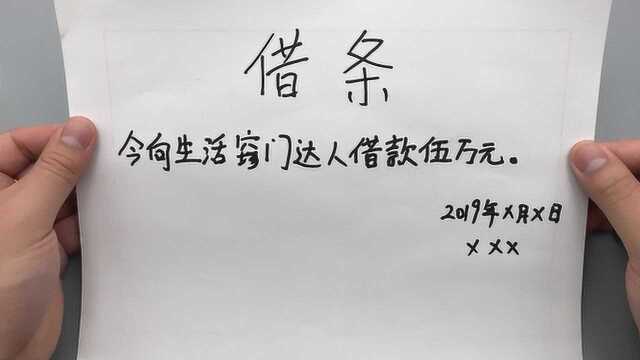 借条
今向生活窍门达人借款伍万元。
2019年X月X日
XXX